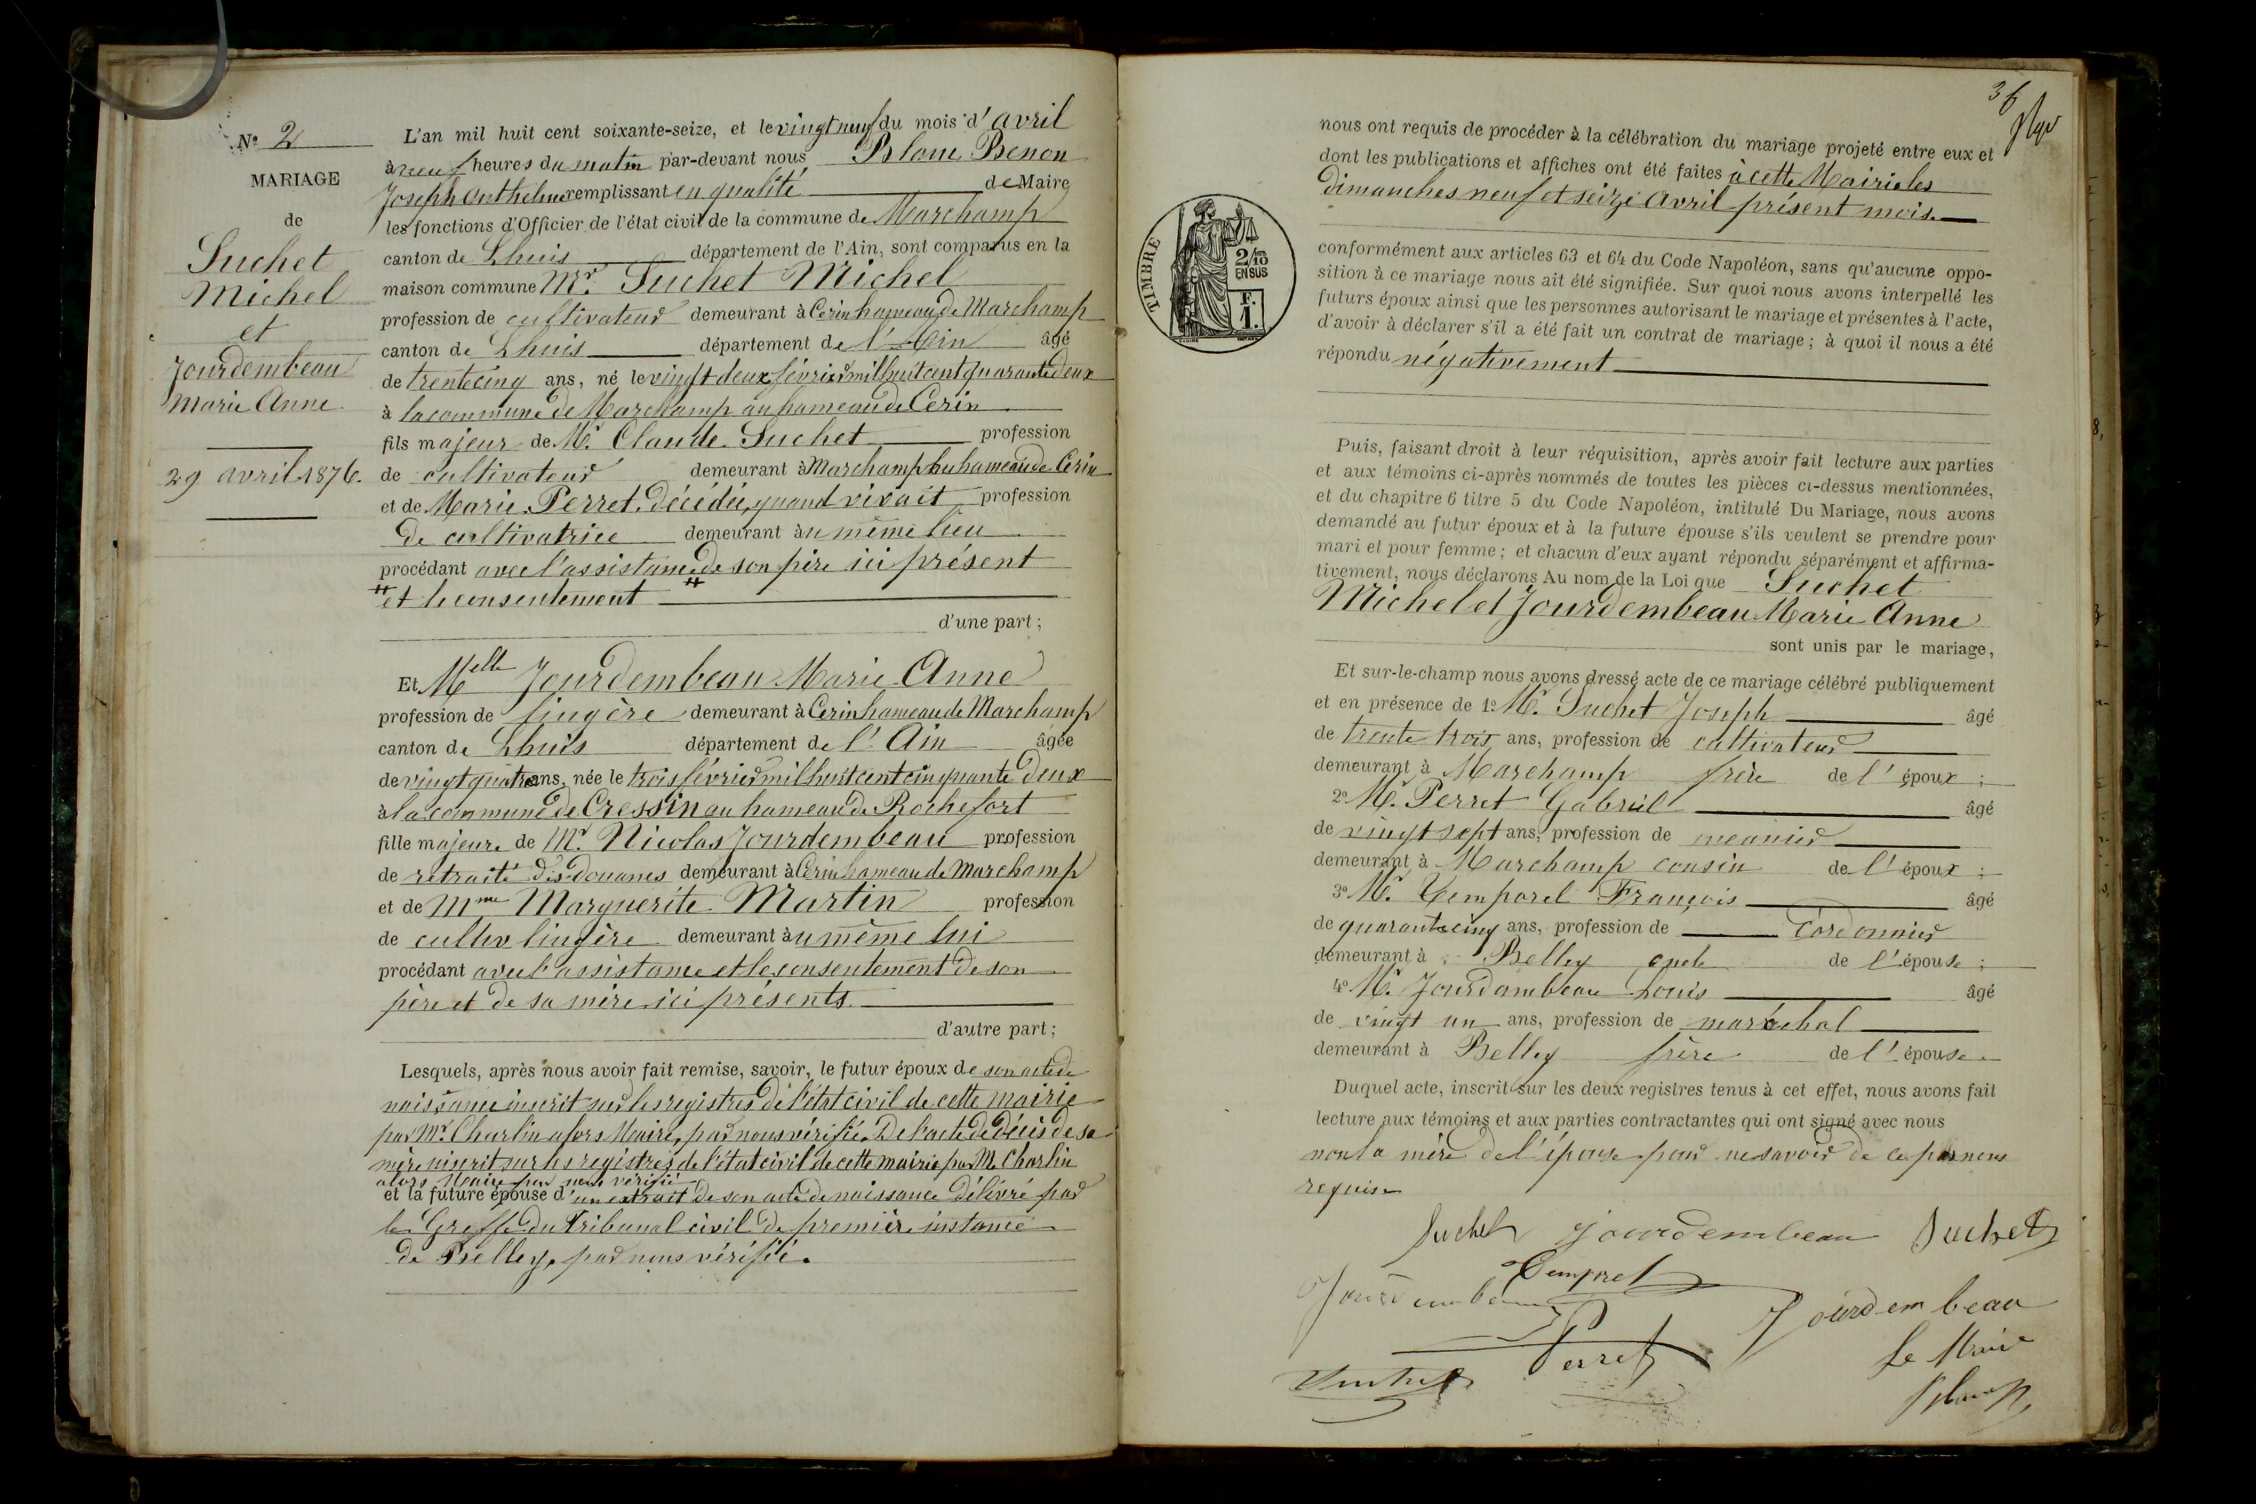 Nº 2
MARIAGE
de
Suchet
Michel
et
Jourdembeau
Marie Anne
29 avril 1876.
L'an mil huit cent soixante-seize, et le vingt neuf du mois d'avril
à neuf heures du matin par-devant nous Blanc Benon
Joseph Anthelme remplissant en qualité de Maire
les fonctions d'Officier de l'état civil de la commune de Marchamp
canton de Lhuis département de l'Ain, sont comparus en la
maison commune Mr. Suchet Michel
profession de cultivateur demeurant à Cerin hameau de Marchamp
canton de Lhuis département de l'Ain âgé
de trente cinq ans, né le vingt deux février mil huit cent quarante deux
à la commune de Marchamp au hameau de Cerin
fils majeur de Mr. Claude Suchet profession
de cultivateur demeurant à Marchamp au hameau de Cerin
et de Marie Perret, décédée, quand vivait profession
de cultivatrice demeurant au même lieu
procédant avec l'assistance # de son père ici présent
# et le consentement
d'une part;
Et Melle Jourdembeau Marie Anne
profession de lingère demeurant à Cerin hameau de Marchamp
canton de Lhuis département de l'Ain âgée
de vingt quatre ans, née le trois février mil huit cent cinquante deux
à la commune de Cressin au hameau de Rochefort
fille majeure de Mr. Nicolas Jourdembeau profession
de retraité des douanes demeurant à Cerin hameau de Marchamp
et de Mme Marguerite Martin profession
de cultiv lingère demeurant au même lieu
procédant avec l'assistance et le consentement de son
père et de sa mère ici présents.
d'autre part;
Lesquels, après nous avoir fait remise, savoir, le futur époux de son acte de
naissance inscrit sur les registres de l'état civil de cette mairie
par Mr. Charlin alors Maire, par nous vérifié. De l'acte de décès de sa
mère inscrit sur les registres de l'état civil de cette mairie par M. Charlin
alors Maire par nous vérifié
et la future épouse d'un extrait de son acte de naissance délivré par
le Greffe du Tribunal civil de première instance
de Belley, par nous vérifié.
36
TIMBRE
2/10
EN SUS
F.
1.
nous ont requis de procéder à la célébration du mariage projeté entre eux et
dont les publications et affiches ont été faites à cette Mairie les
dimanches neuf et seize avril présent mois.
conformément aux articles 63 et 64 du Code Napoléon, sans qu'aucune oppo-
sition à ce mariage nous ait été signifiée. Sur quoi nous avons interpellé les
futurs époux ainsi que les personnes autorisant le mariage et présentes à l'acte,
d'avoir à déclarer s'il a été fait un contrat de mariage; à quoi il nous a été
répondu négativement
Puis, faisant droit à leur réquisition, après avoir fait lecture aux parties
et aux témoins ci-après nommés de toutes les pièces ci-dessus mentionnées,
et du chapitre 6 titre 5 du Code Napoléon, intitulé Du Mariage, nous avons
demandé au futur époux et à la future épouse s'ils veulent se prendre pour
mari et pour femme; et chacun d'eux ayant répondu séparément et affirma-
tivement, nous déclarons Au nom de la Loi que Suchet
Michel et Jourdembeau Marie Anne
sont unis par le mariage,
Et sur-le-champ nous avons dressé acte de ce mariage célébré publiquement
et en présence de 1º Mr. Suchet Joseph âgé
de trente trois ans, profession de cultivateur
demeurant à Marchamp frère de l'époux;
2º Mr. Perret Gabriel âgé
de vingt sept ans, profession de meunier
demeurant à Marchamp cousin de l'époux;
3º Mr. Temporel François âgé
de quarante cinq ans, profession de Cordonnier
demeurant à Belley oncle de l'épouse;
4º Mr. Jourdambeau Louis âgé
de vingt un ans, profession de maréchal
demeurant à Belley frère de l'épouse
Duquel acte, inscrit sur les deux registres tenus à cet effet, nous avons fait
lecture aux témoins et aux parties contractantes qui ont signé avec nous
non la mère de l'épouse pour ne savoir de ce par nous
requise
Suchet Jourdembeau Suchet
Temporel
Jourdembeau
Jourdembeau
Perret
Le Maire
Suchet
Blanc